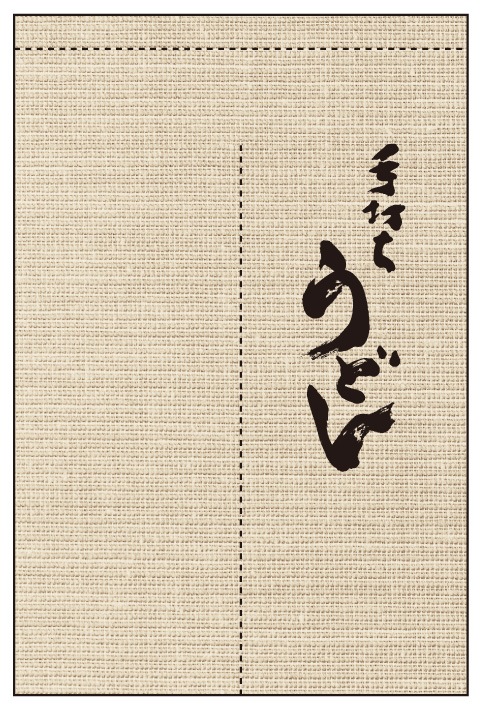 手打ち
うどん